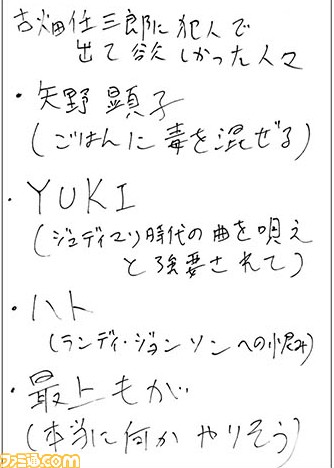 古畑任三郎に犯人で
出て欲しかった人々
・矢野顕子
(ごはんに毒を混ぜる)
・YUKI
(ジュディマリ時代の曲を唄え
と強要されて)
・ハト
(ランディ・ジョンソンへの恨み)
・最上もが
(本当に何かやりそう)
ファミ通.com